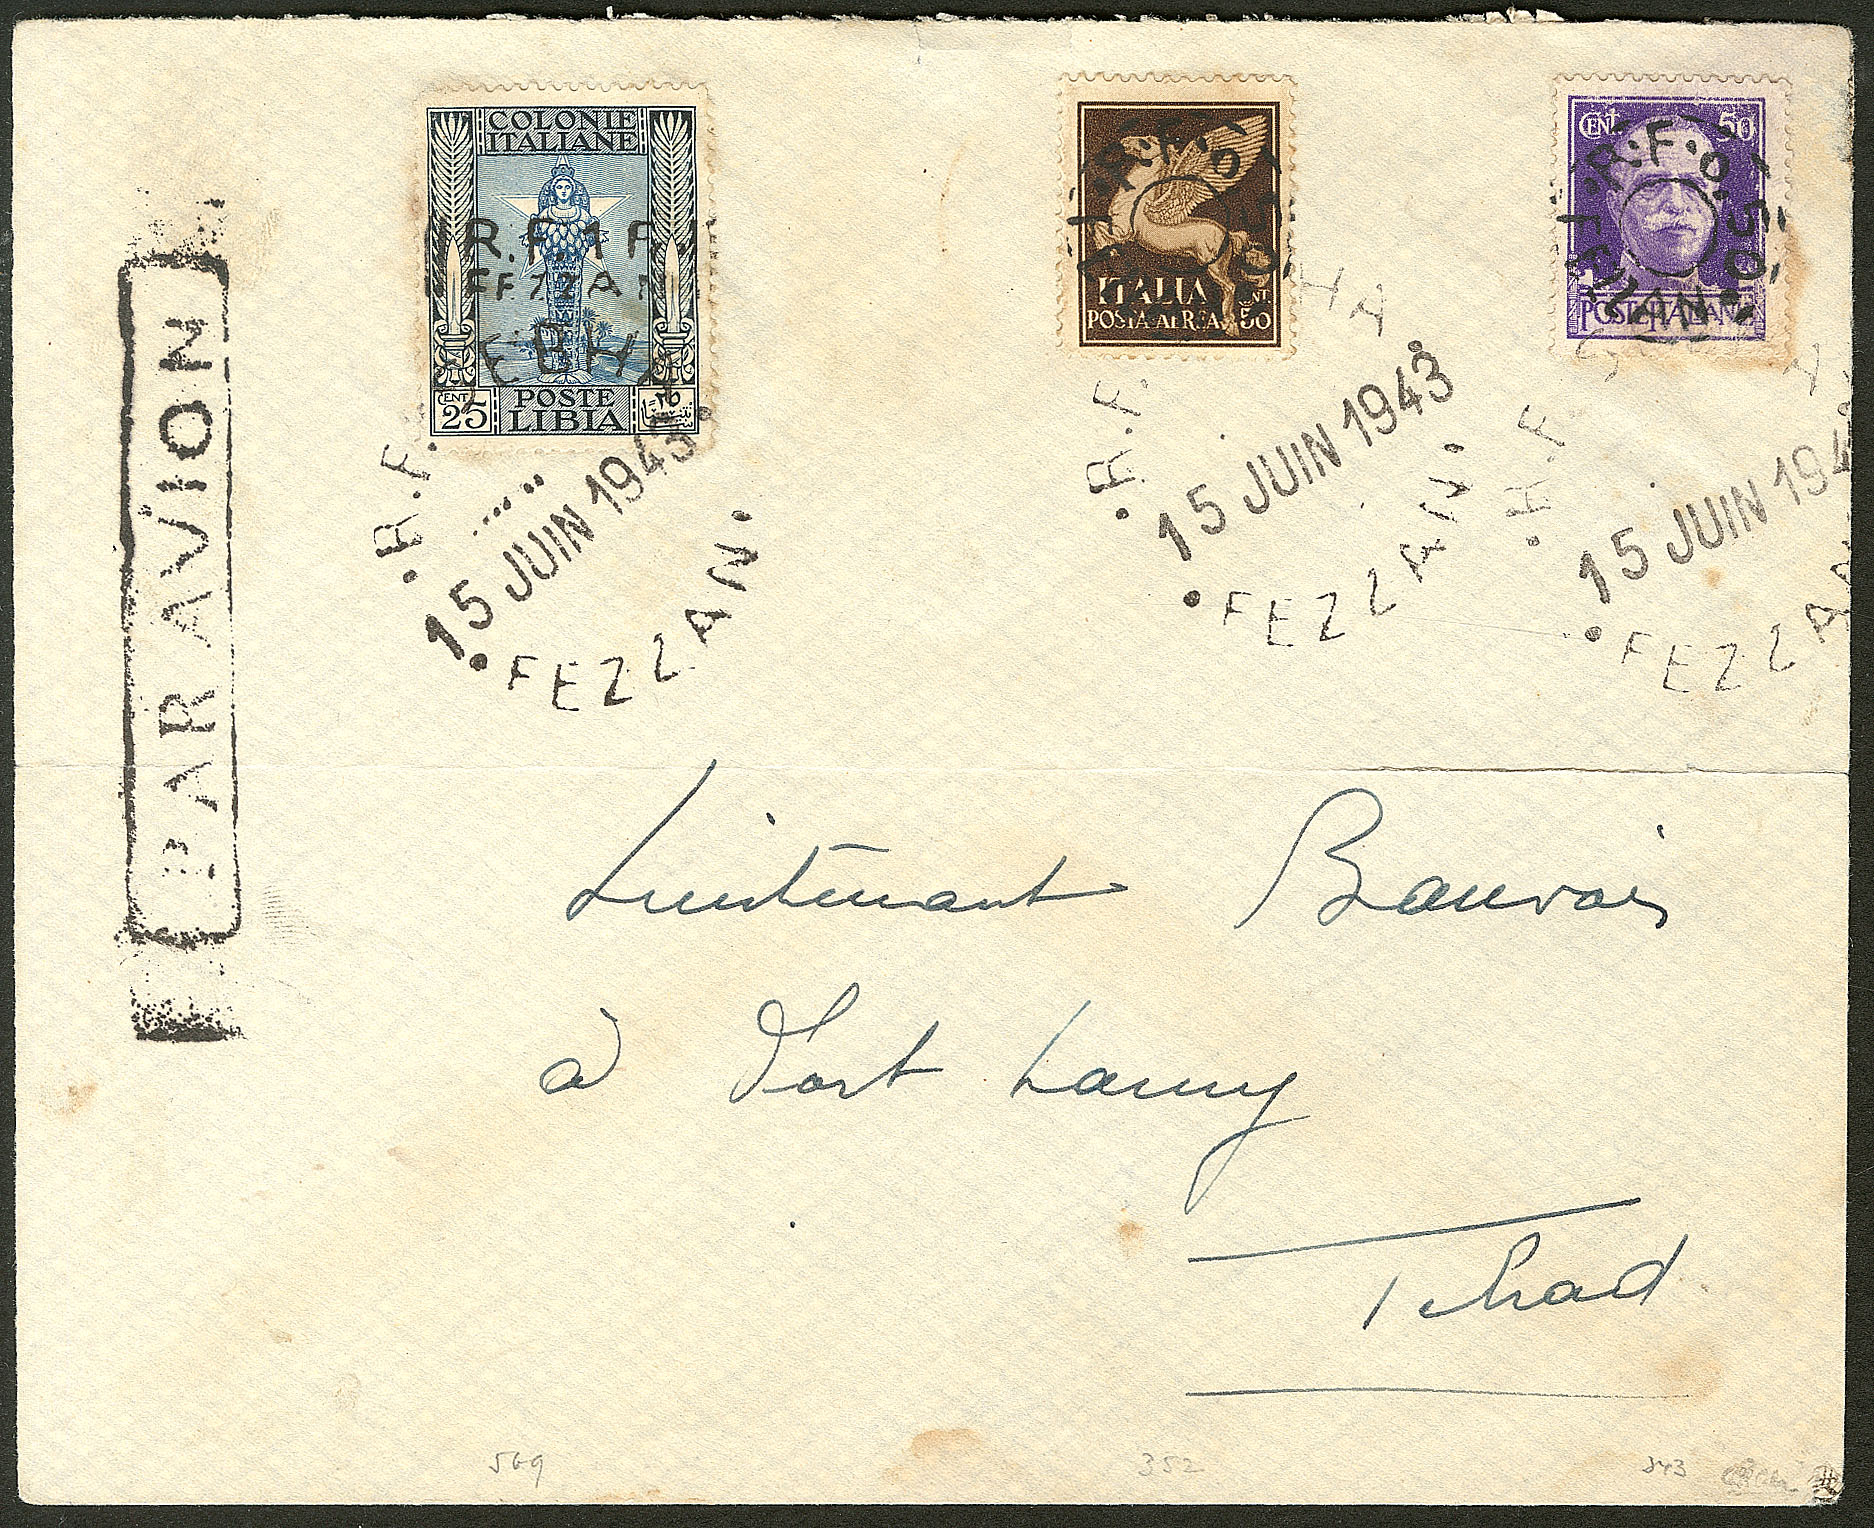 COLONIE
ITALIANE
R.F. 1 Fr
FEZZAN
SEBHA
CENT
25
POSTE
LIBIA
R.F.
15 JUIN 1943
FEZZAN
R.F. 0.50
FEZZAN
ITALIA
POSTA AEREA
CENT.
50
HA
R.F.
15 JUIN 1943
FEZZAN
CENT 50
R.F. 0.50
FEZZAN
POSTE ITALIANE
S A
R.F.
15 JUIN 194
FEZZAN
PAR AVION
Lieutenant Beauvais
à Fort Lamy
Tchad
569
352
343